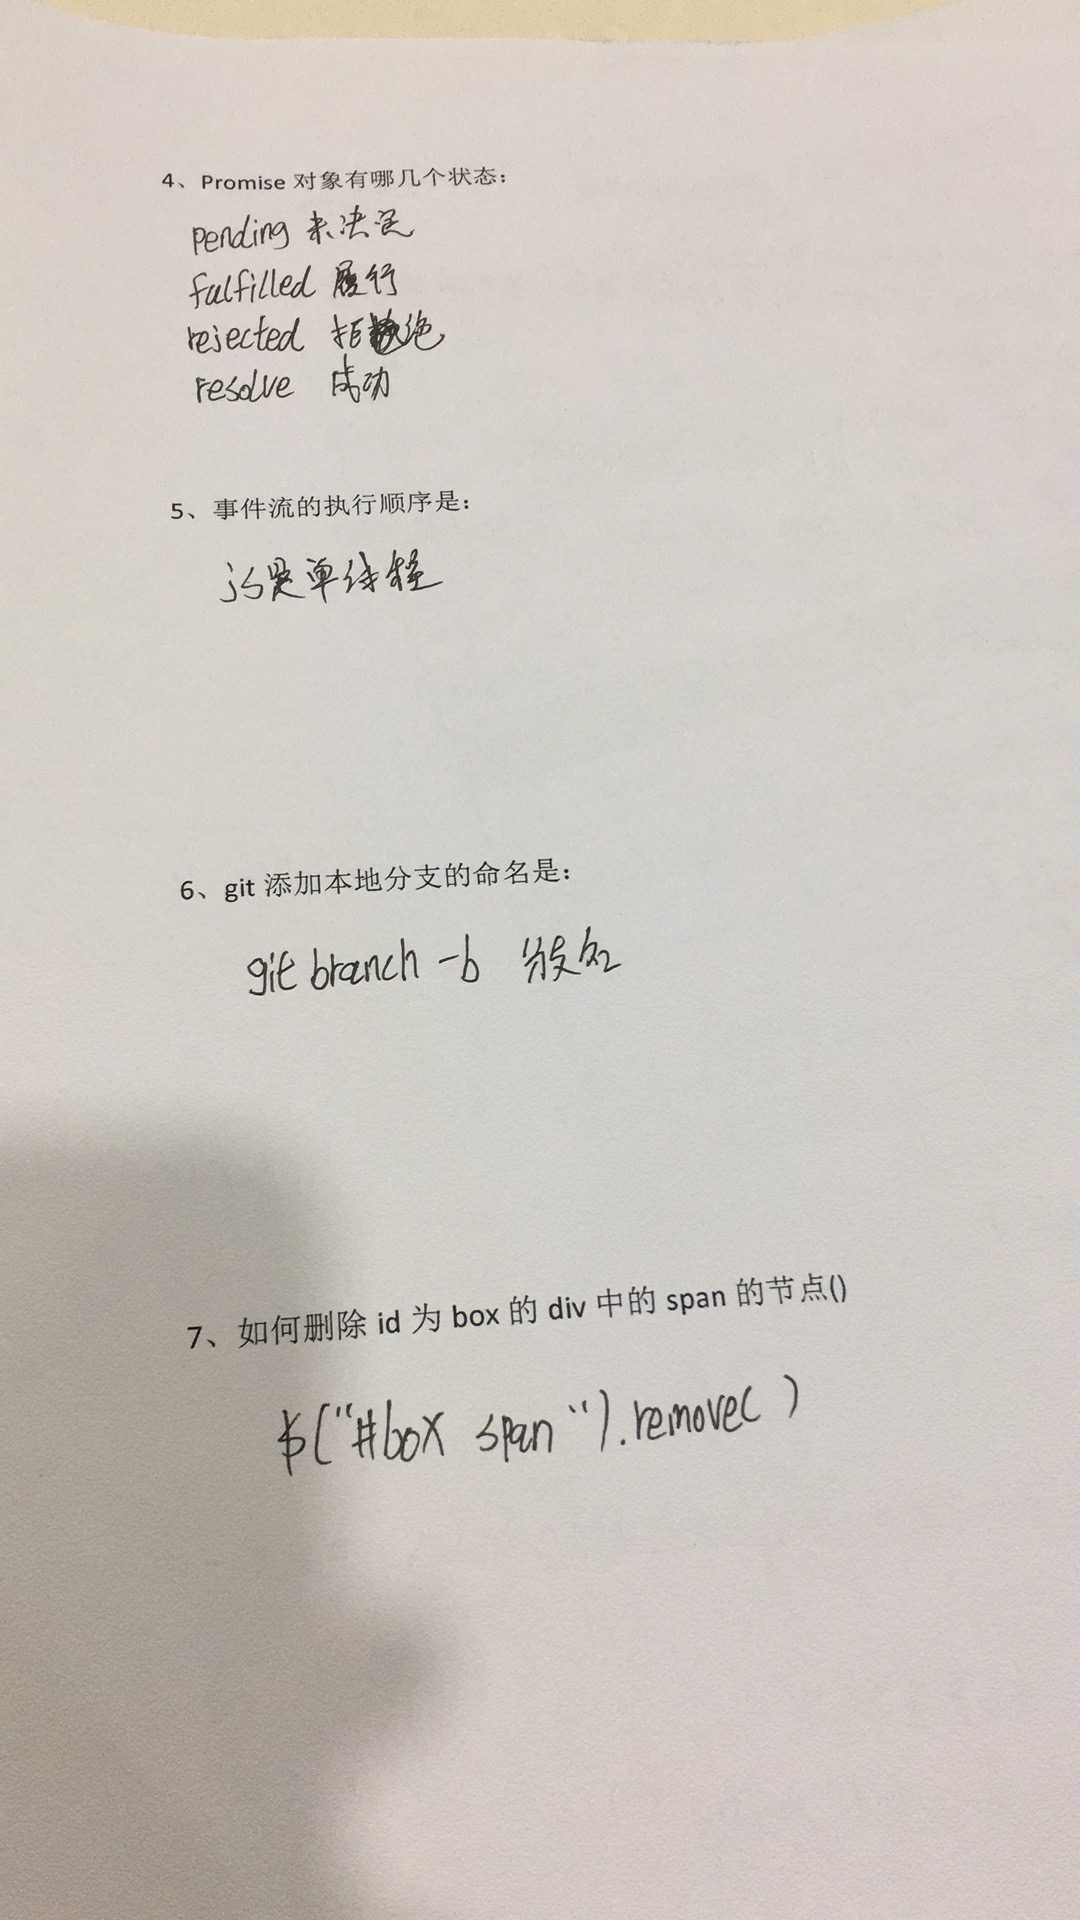 4、Promise 对象有哪几个状态：
pending 未决定
fulfilled 履行
rejected 拒绝
resolve 成功
5、事件流的执行顺序是：
js是单线程
6、git 添加本地分支的命名是：
git branch -b 分支名
7、如何删除 id 为 box 的 div 中的 span 的节点()
$("#box span").remove( )